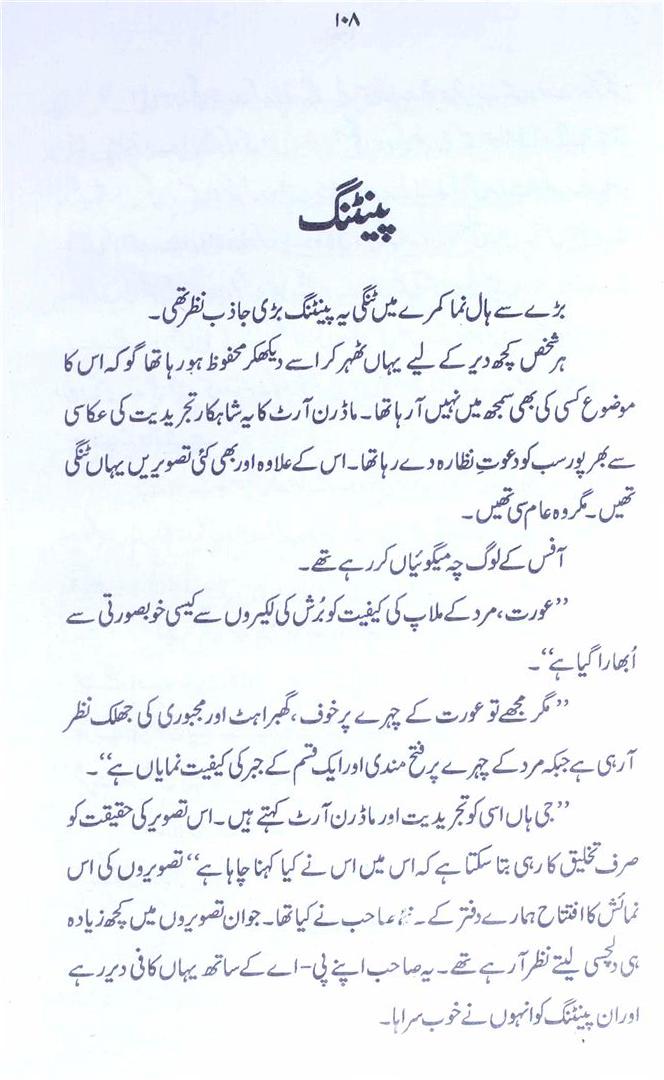 ۱۰۸
پینٹنگ
بڑے سے ہال نما کمرے میں ٹنگی یہ پینٹنگ بڑی جاذب نظر تھی۔
ہر شخص کچھ دیر کے لیے یہاں ٹھہر کر اسے دیکھکر محفوظ ہو رہا تھا گو کہ اس کا
موضوع کسی کی بھی سمجھ میں نہیں آرہا تھا۔ ماڈرن آرٹ کا یہ شاہکار تجریدیت کی عکاسی
سے بھرپور سب کو دعوتِ نظارہ دے رہا تھا۔ اس کے علاوہ اور بھی کئی تصویریں یہاں ٹنگی
تھیں۔ مگر وہ عام سی تھیں۔
آفس کے لوگ چہ میگوئیاں کر رہے تھے۔
”عورت، مرد کے ملاپ کی کیفیت کو بُرش کی لکیروں سے کیسی خوبصورتی سے
اُبھارا گیا ہے“۔
”مگر مجھے تو عورت کے چہرے پر خوف، گھبراہٹ اور مجبوری کی جھلک نظر
آرہی ہے جبکہ مرد کے چہرے پر فتح مندی اور ایک قسم کے جبر کی کیفیت نمایاں ہے“۔
”جی ہاں اسی کو تجریدیت اور ماڈرن آرٹ کہتے ہیں۔ اس تصویر کی حقیقت کو
صرف تخلیق کار ہی بتا سکتا ہے کہ اس میں اس نے کیا کہنا چاہا ہے“ تصویروں کی اس
نمائش کا افتتاح ہمارے دفتر کے۔ نئے صاحب نے کیا تھا۔ جو ان تصویروں میں کچھ زیادہ
ہی دلچسی لیتے نظر آرہے تھے۔ یہ صاحب اپنے پی-اے کے ساتھ یہاں کافی دیر رہے
اور ان پینٹنگ کو انہوں نے خوب سراہا۔